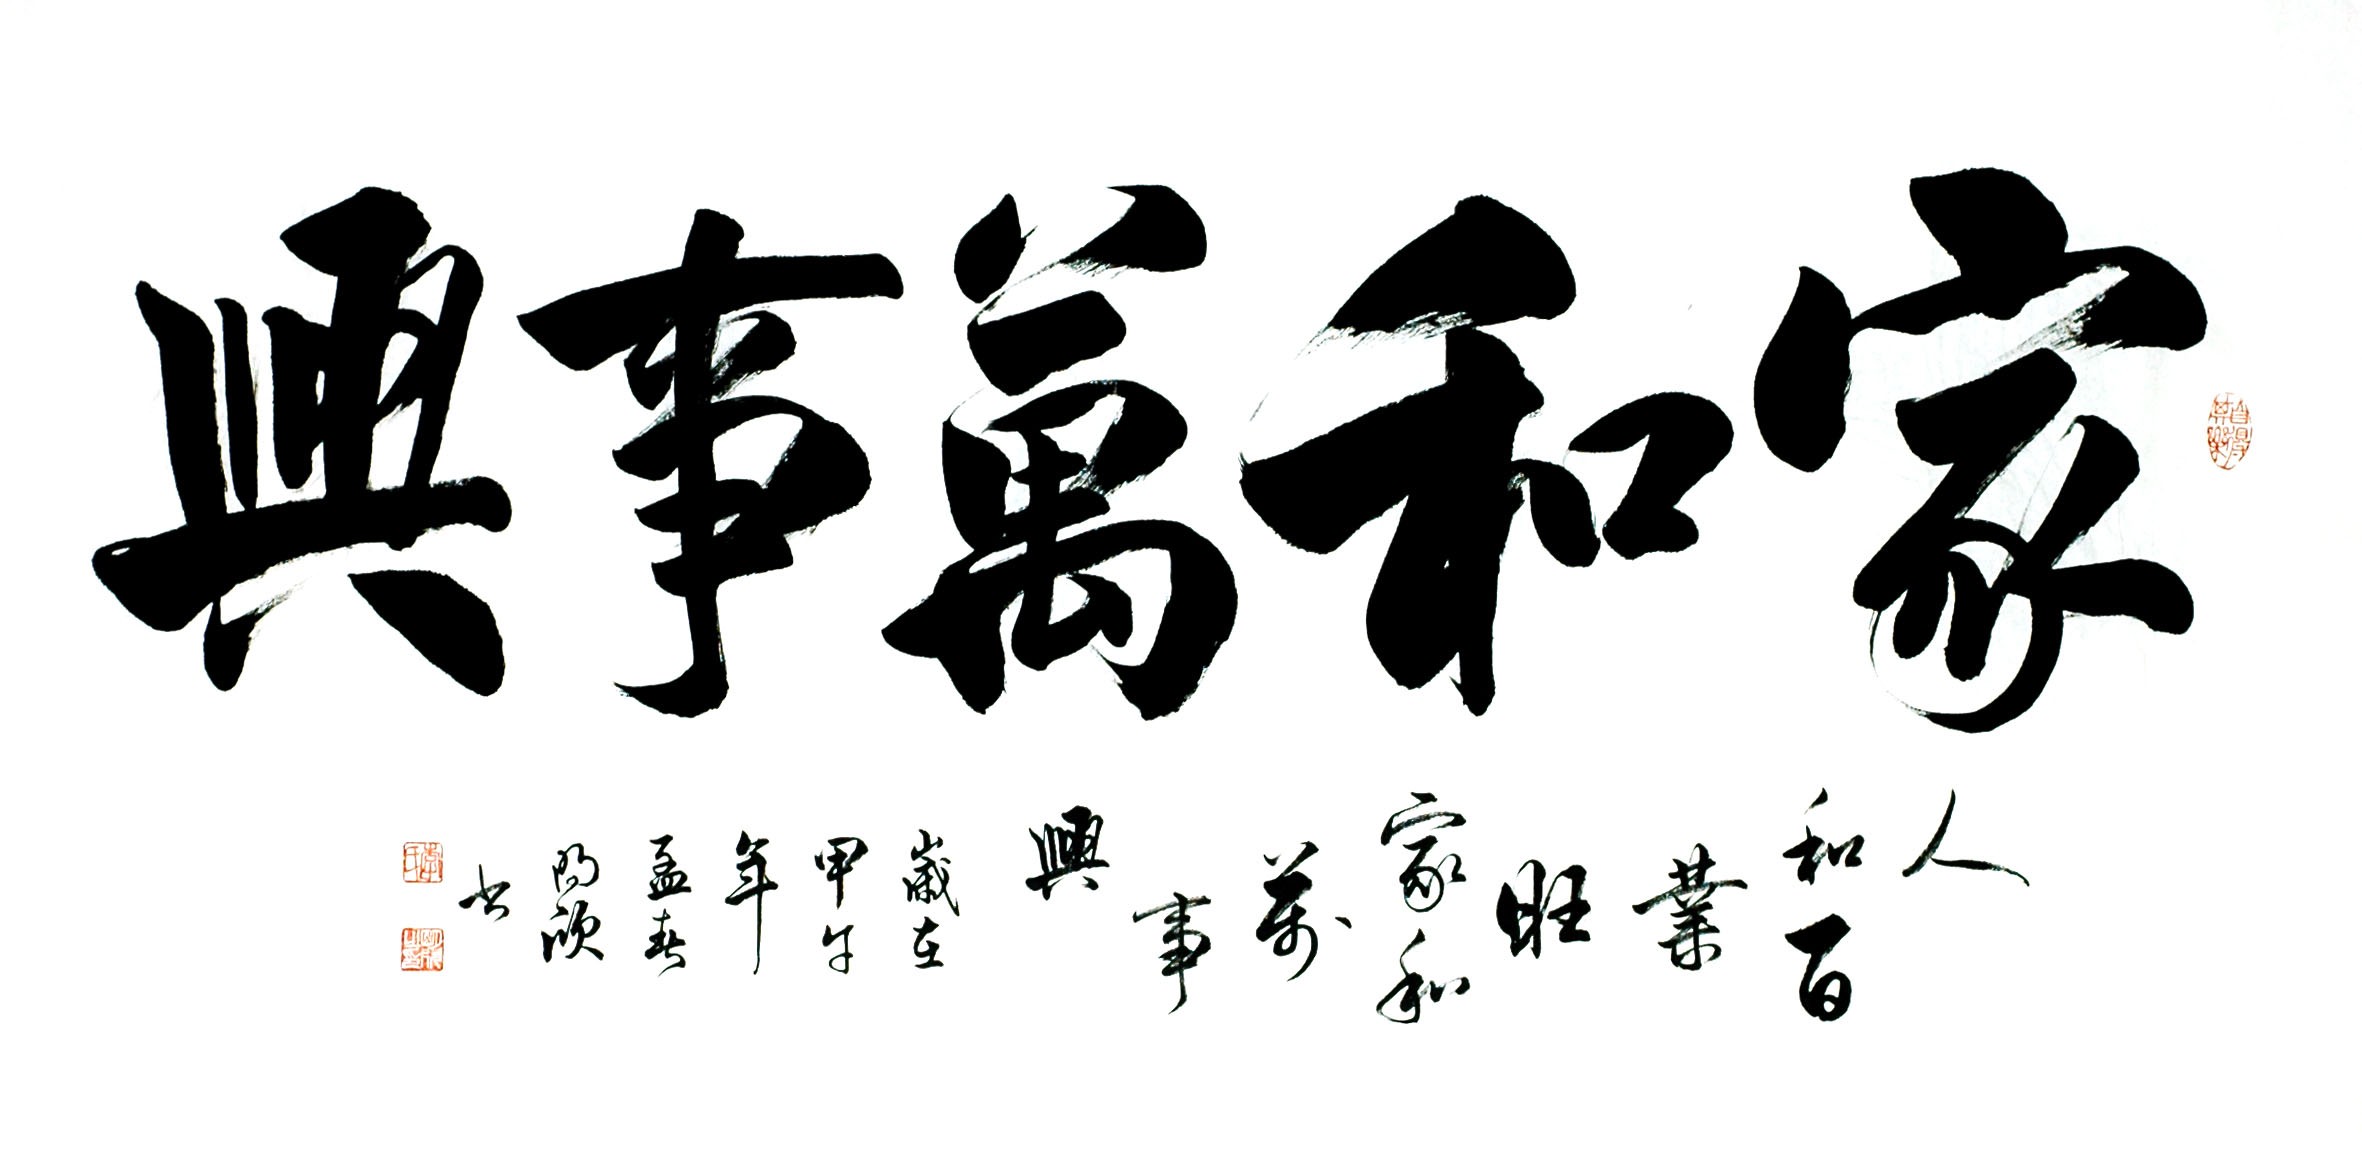 家和萬事興
人和百業旺家和萬事興
歲在甲午年孟春明欣书